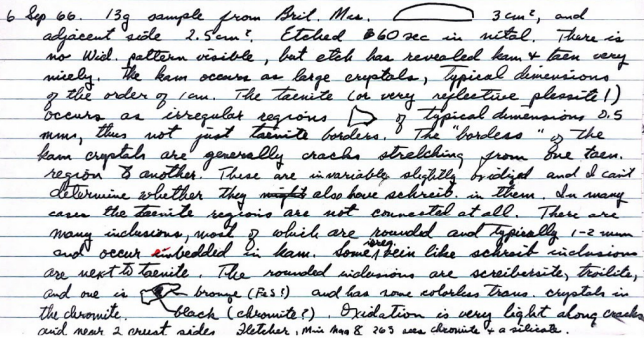 6 Sep 66. 13g sample from Brit. Mus. 3 cm², and
adjacent side 2.5 cm². Etched 60 sec in nital. There is
no Wid. pattern visible, but etch has revealed kam & taen very
nicely. The kam occurs as large crystals, typical dimensions
of the order of 1 cm. The taenite (or very reflective plessite!)
occurs as irregular regions of typical dimensions 0.5
mm, thus not just taenite borders. The "borders" of the
kam crystals are generally cracks stretching from one taen.
region to another. These are invariably slightly oxidized and I can't
determine whether they might also have schreib. in them. In many
cases the taenite regions are not connected at all. There are
many inclusions, most of which are rounded and typically 1-2 mm
and occur embedded in kam. Some irreg. vein like schreib inclusions
are next to taenite. The rounded inclusions are screibersite, troilite,
and one is bronze (FeS?) and has some colorless trans. crystals in
the chromite. black (chromite?). Oxidation is very light along cracks
and near 2 crust sides Fletcher, Min Mag 8 263 sees chromite & a silicate.